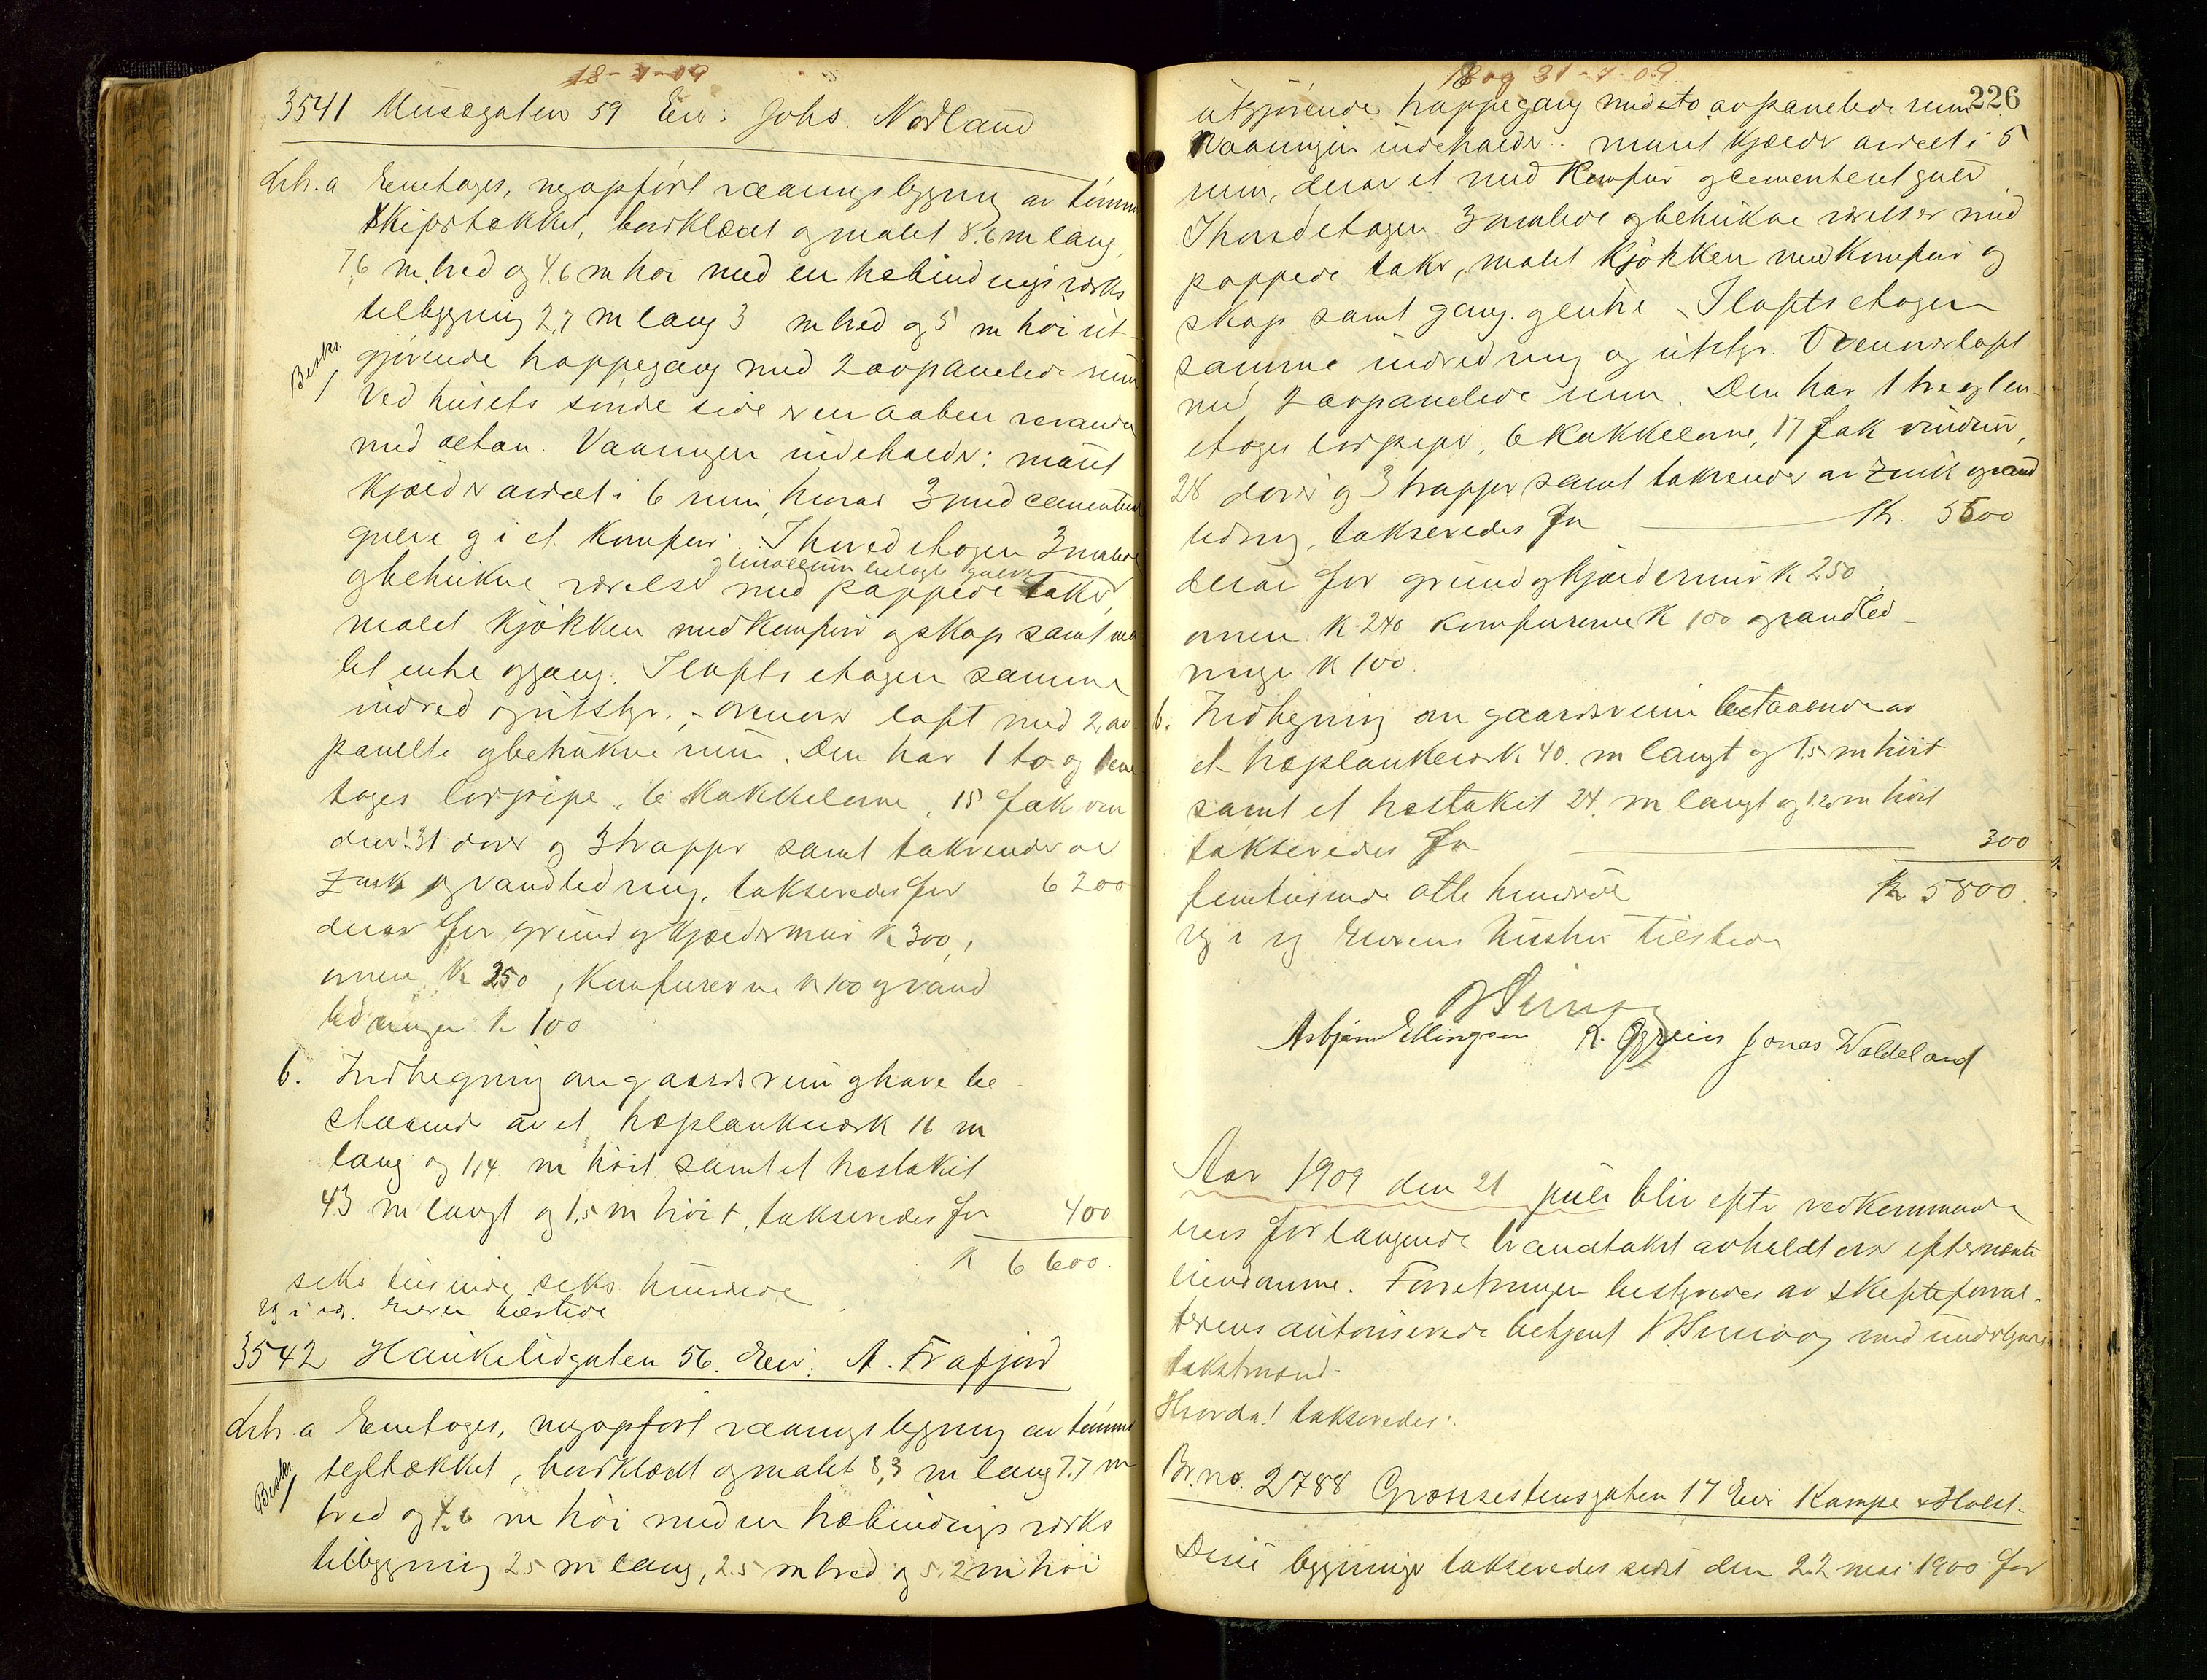 18-7-09
3541 Musegaten 59 Eier: Johs. Nodland
Litr. a Eenetages, nyopført vaaningsbygning av tømmer
skifertækket, bordklædt og malet 8.6 m lang,
7,6 m. bred og 4.6 m høi med en træbindingsverks
tilbygning 2,7 m lang 3 m bred og 5 m høi ut-
Beskr.
gjørende trappegang med 2 avpanelede rum
Ved husets søndre side er en aaben veranda
med altan. Vaaningen indeholder: muret
kjælder avdelt i 6 rum, hvorav 3 med cementeret
gulv og i et komfur. I hovedetagen 3 malede
og linoleum belagte gulve
og betrukne værelser med pappede taker,
malet kjøkken med komfur og skap samt ma
let entre og gang. I loftsetagen samme
indred og utstyr. - øverst loft med 2 av-
panelte og betrukne rum. Den har 1 to og 1 een
tages korspipe, 6 kakkelovne, 15 fak vin
duer 31 dører og 3 trapper samt takrender av
zink og vandledning, takseredes for 6200
derav for grund og kjældermur k 300,
ovnen k 250, komfurerne k 100 og vand
ledningen k 100
b. Indhegning om gaardsrum og have be-
staaende av et træplankeverk 16 m
lang og 1,4 m høit samt et træstakit
43 m langt og 1,5 m høit, takseredes for 400
k 6600.
seks tusinde seks hundrede
3542 Haukelidgaten 56. Eier: A. Frafjord
Litr. a Eenetages, nyopført vaaningsbygning av tømmer
Beskr.
tegltækket, bordklædt og malet 8,3 m lang 7.7 m
bred og 4.6 m høi med en træbindingsverks
tilbygning 2.5 m lang, 2.5 m bred og 5.2 m høi
18 og 21-7-09
226
utgjørende trappegang med to avpanelede rum
Vaaningen indeholder: muret kjælder avdelt i 5
rum, derav et med komfur og cementeret gulv
I hovedetagen 3 malede og betrukne værelser med
pappede taker, malet kjøkken med komfur og
skap samt gang og entre. I loftsetagen
samme indredning og utstyr. Ovenover loft
med 2 avpanelede rum. Den har 1 tre og 1 en-
etages korspipe, 6 kakkelovne, 17 fak vinduer,
28 dører og 3 trapper samt takrender av zink og vand
ledning, takseredes for Kr. 5500
derav for grund og kjældermur k 250,
ovnen k 240 komfurerne k 100 og vandled-
ningen k 100
b. Indhegning om gaardsrum bestaaende av
et træplankeverk 40 m langt og 1.5 m høit
samt et træstakit 24 m langt og 1.20 m høit
takseredes for 300
femtusinde otte hundrede Kr 5800.
Eierens hustru tilstede
Asbjørn Ellingsen Jonas Waldeland
Aar 1909 den 21 juli blir efter vedkommende
eiers forlangende brandtakst avholdt over efternævnte
eiendomme. Forretningen bestyredes av skifteforval-
terens autoriserede betjent med undertegnede
takstmænd.
Hvorda! takseredes:
Br. no. 2788 Grænsestensgaten 17 Eier Kampe & Holst.
Disse bygninger takseredes sidst den 22 mai 1900 for